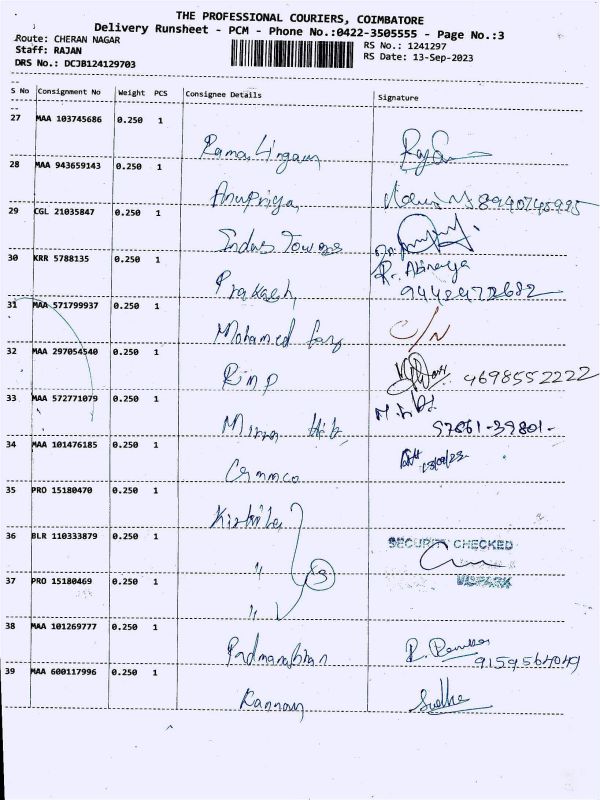 THE PROFESSIONAL COURIERS, COIMBATORE
Delivery Runsheet - PCM - Phone No.:0422-3505555 - Page No.:3
Route: CHERAN NAGAR
RS No.: 1241297
Staff: RAJAN
RS Date: 13-Sep-2023
DRS No.: DCJB124129703
S No Consignment No Weight PCS Consignee Details Signature
27 MAA 103745686 0.250 1
Rama Lingam
28 MAA 943659143 0.250 1
Anupriya
29 CGL 21035847 0.250 1
Indus Towers
30 KRR 5788135 0.250 1 R. Abinaya
Prakash
31 MAA 571799937 0.250 1
Mohamed C/N
32 MAA 297054540 0.250 1
4698552222
33 MAA 572771079 0.250 1
34 MAA 101476185 0.250 1
35 PRO 15180470 0.250 1
36 BLR 110333879 0.250 1 SECURITY CHECKED
" 3
37 PRO 15180469 0.250 1
"
38 MAA 101269777 0.250 1
Padmanaban 9159564049
39 MAA 600117996 0.250 1
Kannan Sudha